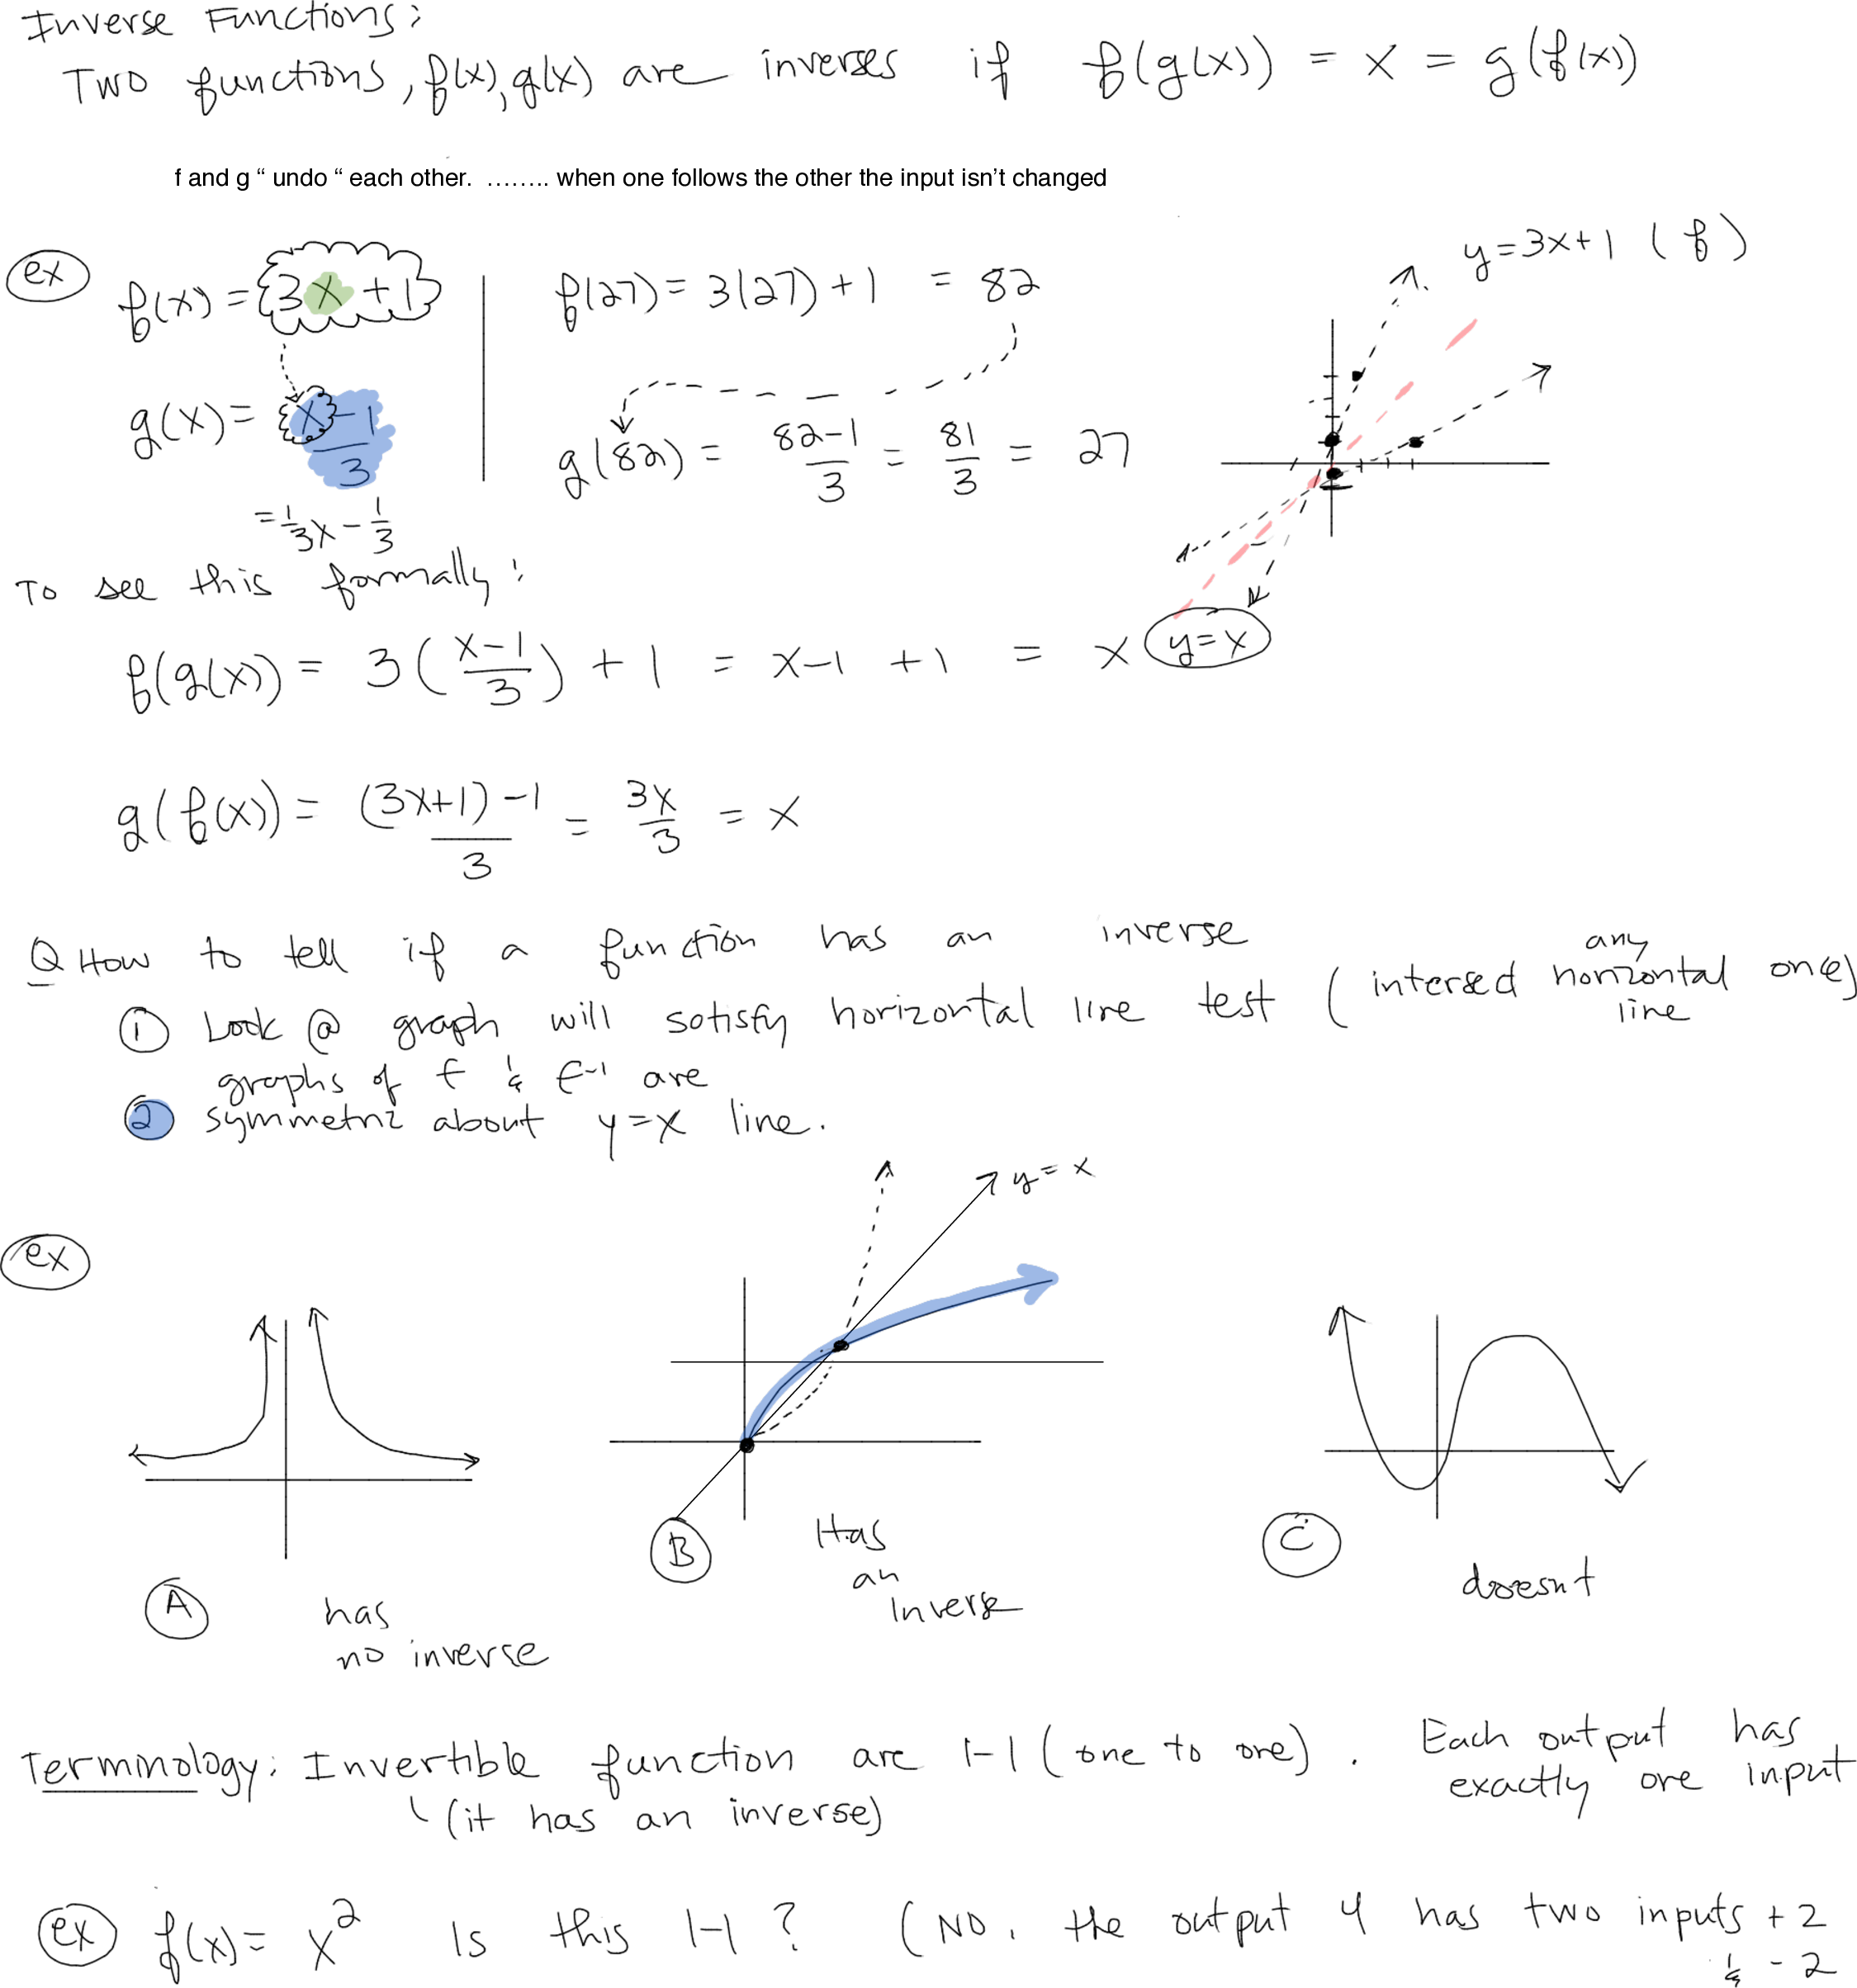 Inverse Functions:
Two functions, f(x), g(x) are inverses if f(g(x)) = x = g(f(x))
f and g “ undo “ each other. …….. when one follows the other the input isn’t changed
ex
f(x) = 3x+1
g(x) = (x-1)/3
= 1/3x - 1/3
f(27) = 3(27)+1 = 82
g(82) = (82-1)/3 = 81/3 = 27
y=3x+1 (f)
y=x
To see this formally:
f(g(x)) = 3((x-1)/3) + 1 = x-1 +1 = x
g(f(x)) = ((3x+1)-1)/3 = 3x/3 = x
Q How to tell if a function has an inverse
① Look @ graph will satisfy horizontal line test (intersect any horizontal line once)
graphs of f & f⁻¹ are
② symmetric about y=x line.
ex
y=x
A
has
no inverse
B
Has
an
Inverse
C
doesnt
Terminology: Invertible function are 1-1 (one to one). Each output has
exactly one input
(it has an inverse)
ex f(x)= x² Is this 1-1? (NO. the output 4 has two inputs +2
& -2